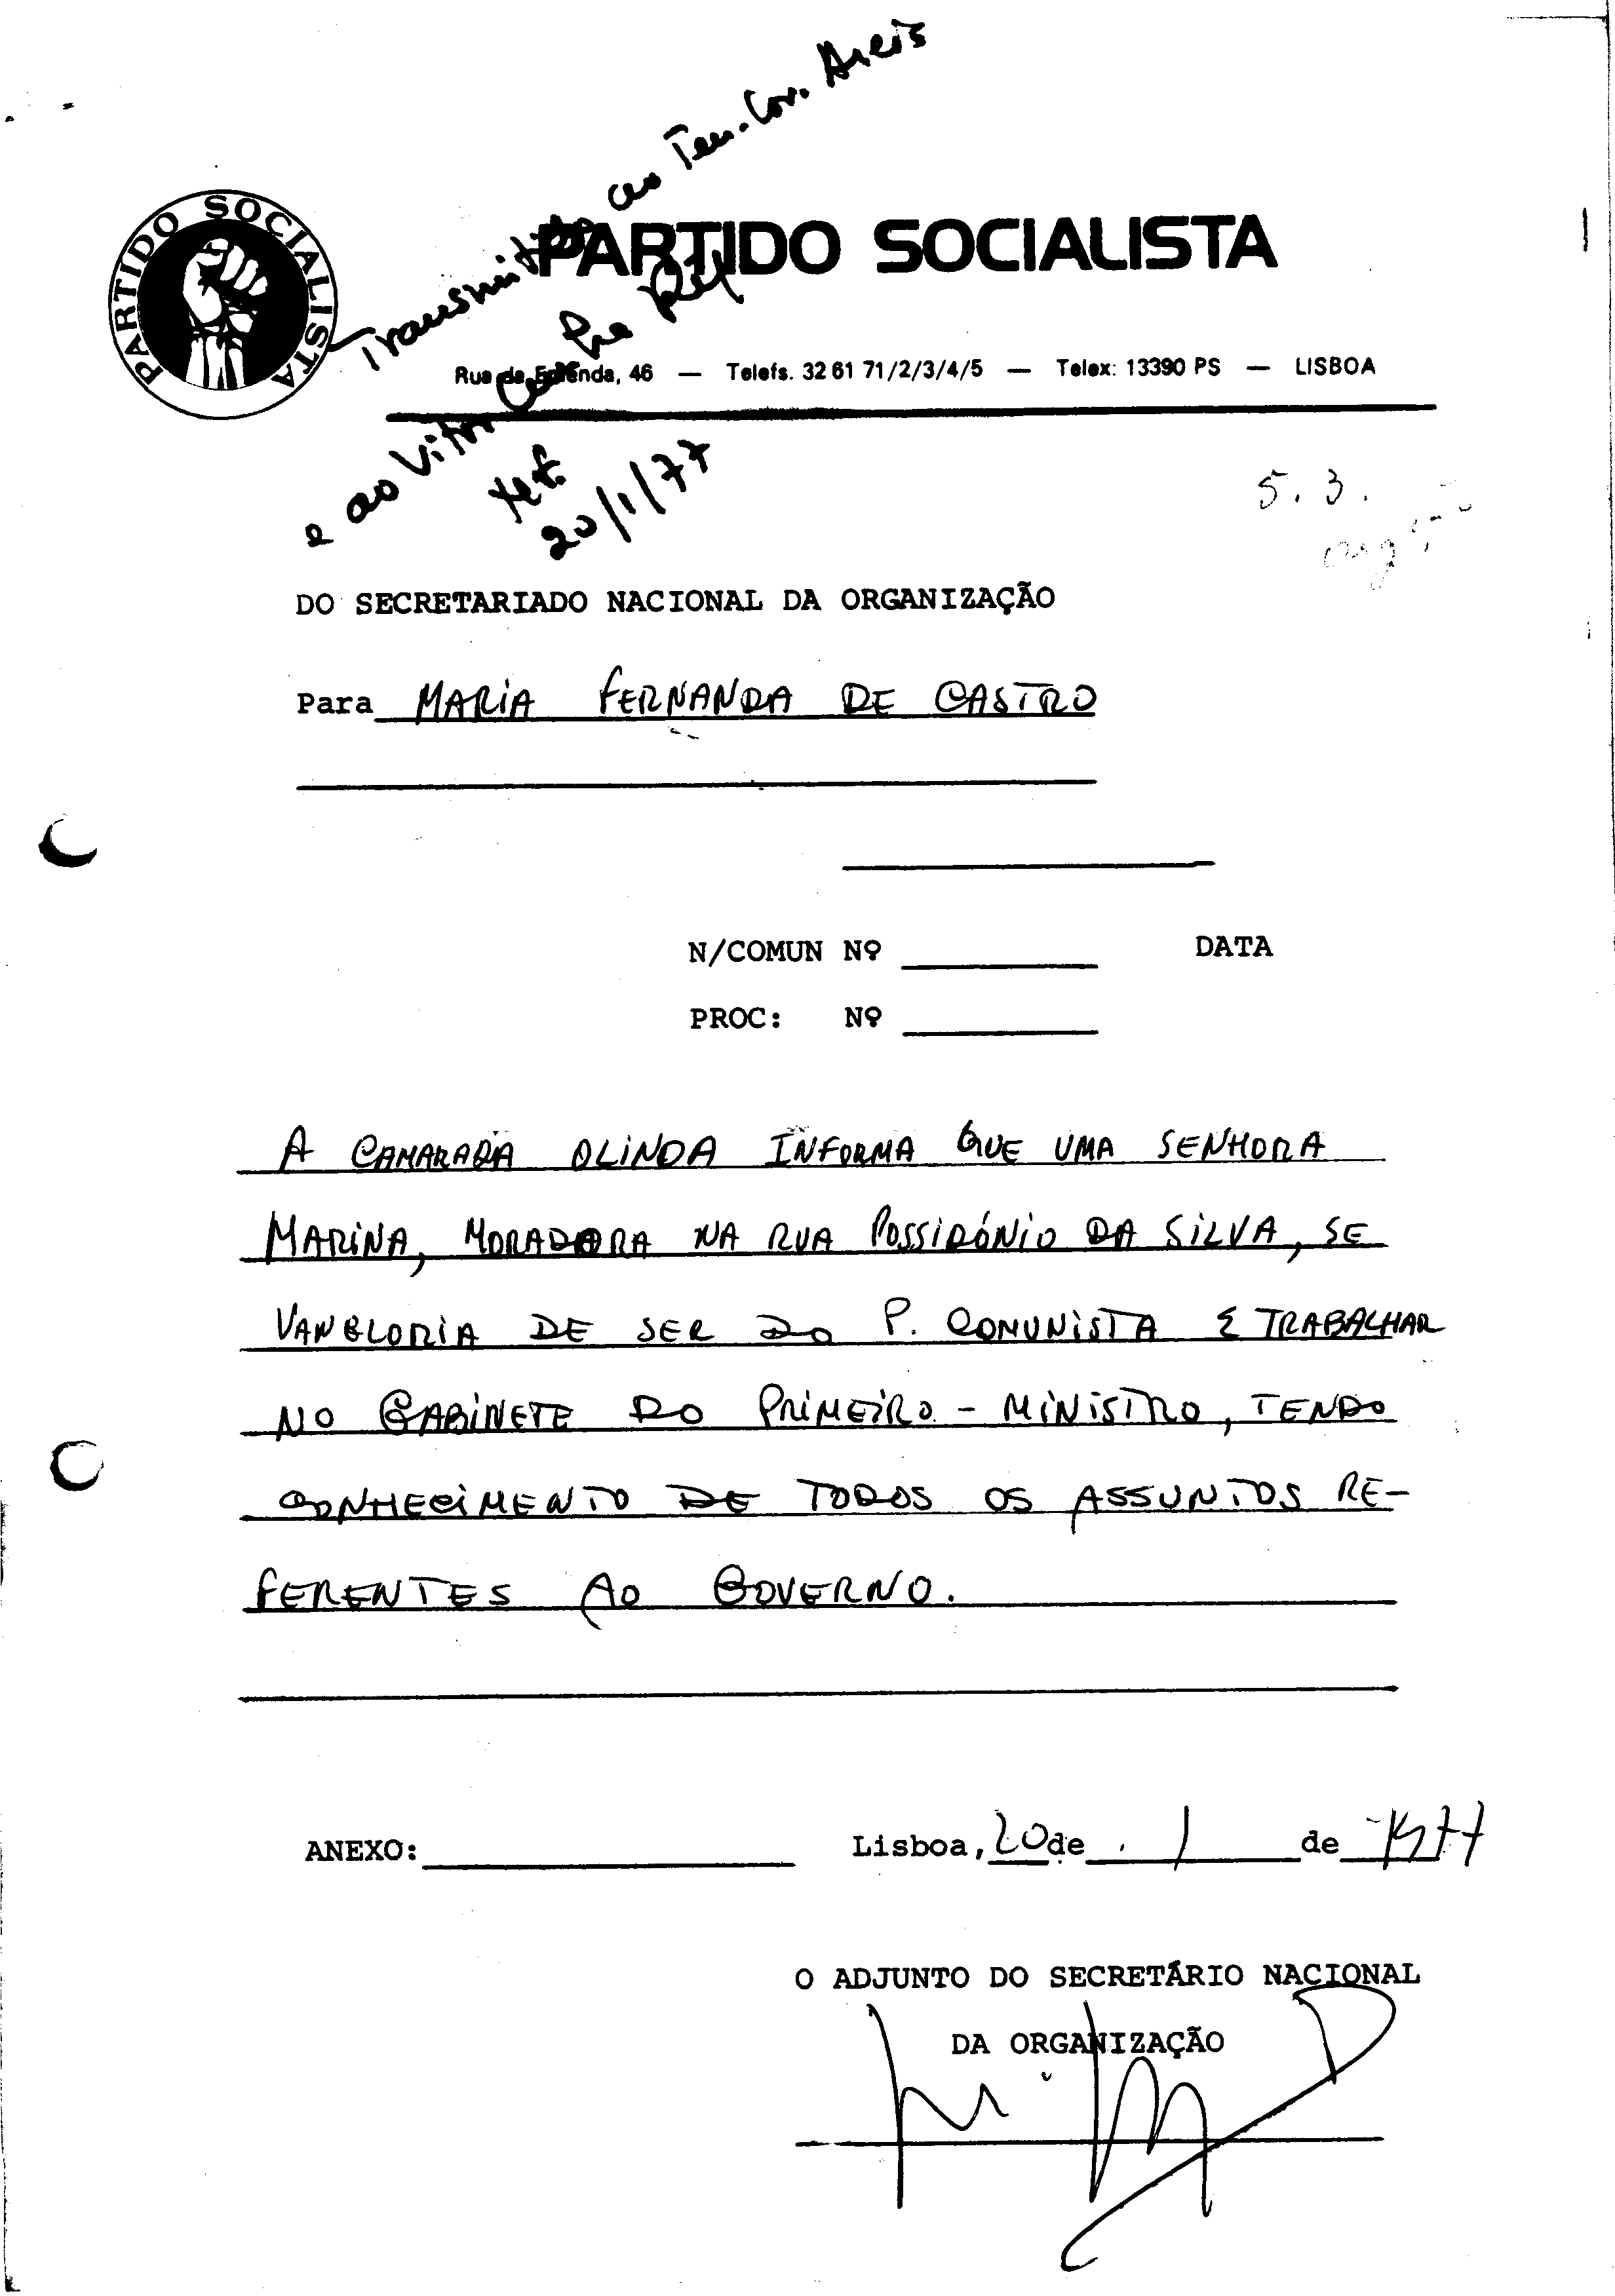 Transmitido ao Ten. Cor.
PARTIDO SOCIALISTA
PARTIDO SOCIALISTA
Rua da Emenda, 46 — Telefs. 32 61 71/2/3/4/5 — Telex: 13390 PS — LISBOA
e ao Vitor
tef.
20/1/77
5.3.
DO SECRETARIADO NACIONAL DA ORGANIZAÇÃO
Para MARIA FERNANDA DE CASTRO
N/COMUN Nº DATA
PROC: Nº
A CAMARADA OLINDA INFORMA QUE UMA SENHORA
MARINA, MORADORA NA RUA POSSIDÓNIO DA SILVA, SE
VANGLORIA DE SER DO P. COMUNISTA E TRABALHAR
NO GABINETE DO PRIMEIRO - MINISTRO, TENDO
CONHECIMENTO DE TODOS OS ASSUNTOS RE-
FERENTES AO GOVERNO.
ANEXO: Lisboa, 20 de 1 de 1977
O ADJUNTO DO SECRETÁRIO NACIONAL
DA ORGANIZAÇÃO